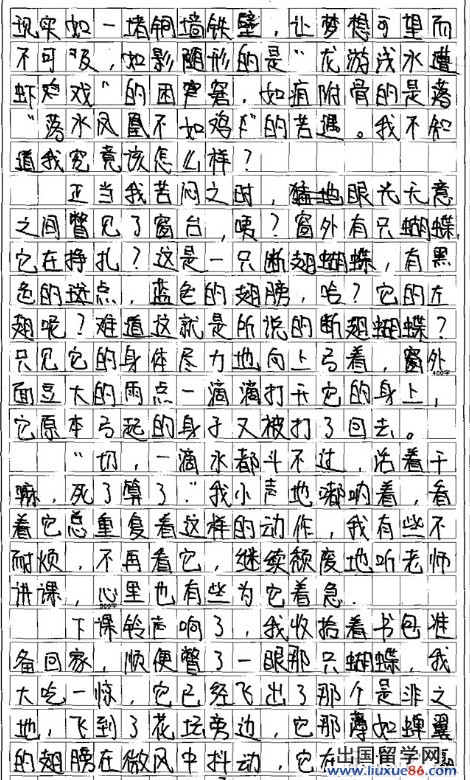 现实如一堵铜墙铁壁，让梦想可望而
不可及，如影随形的是“龙游浅水遭
虾鸡戏”的困窘，如疽附骨的是落
“落水凤凰不如鸡”的苦遇。我不知
道我究竟该怎么样？
正当我苦闷之时，眼光无意
之间瞥见了窗台，咦？窗外有只蝴蝶，
它在挣扎？这是一只断翅蝴蝶，有黑
色的斑点，蓝色的翅膀，哈？它的左
翅呢？难道这就是所说的断翅蝴蝶？
只见它的身体尽力地向上弓着，窗外
面豆大的雨点一滴滴打于它的身上，
它原本弓起的身子又被打了回去。
“切，一滴水都斗不过，活着干
嘛，死了算了。”我小声地嘟呐着，看
着它总重复着这样的动作，我有些不
耐烦，不再看它，继续颓废地听老师
讲课，心里也有些为它着急.
下课铃声响了，我收拾着书包准
备回家，顺便瞥了一眼那只蝴蝶，我
大吃一惊，它已经飞出了那个是非之
地，飞到了花坛旁边，它那薄如蝉翼
的翅膀在微风中抖动，它在
出国留学网
www.liuxue86.com